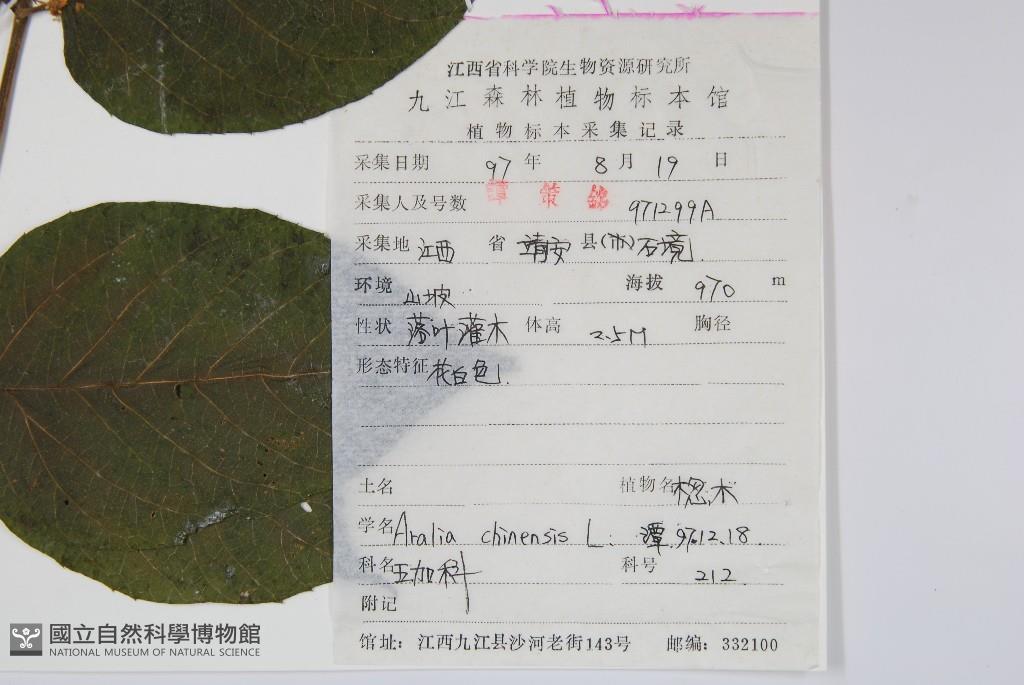 江西省科学院生物资源研究所
九江森林植物标本馆
植物标本采集记录
采集日期 97 年 8 月 19 日
采集人及号数 譚策銘 971299A
采集地 江西 省 靖安 县(市) 石境
环境 山坡 海拔 970 m
性状 落叶灌木 体高 2.5M 胸径
形态特征 花白色.
土名 植物名 楤木
学名 Aralia chinensis L. 潭.97.12.18.
科名 五加科 科号 212
附记
馆址: 江西九江县沙河老街143号 邮编: 332100
國立自然科學博物館
NATIONAL MUSEUM OF NATURAL SCIENCE